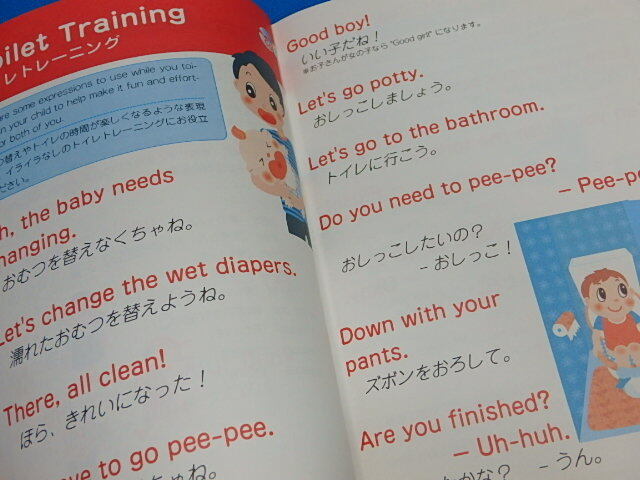 Toilet Training
トイレトレーニング
are some expressions to use while you toi-
your child to help make it fun and effort-
both of you.
替えやトイレの時間が楽しくなるような表現
イライラなしのトイレトレーニングにお役立
ださい。
the baby needs
changing.
おむつを替えなくちゃね。
Let's change the wet diapers.
濡れたおむつを替えようね。
There, all clean!
ほら、きれいになった！
to go pee-pee.
ちゃね。
Good boy!
いい子だね！
※お子さんが女の子なら "Good girl" になります。
Let's go potty.
おしっこしましょう。
Let's go to the bathroom.
トイレに行こう。
Do you need to pee-pee?
– Pee-p
おしっこしたいの？
– おしっこ！
Down with your
pants.
ズボンをおろして。
Are you finished?
– Uh-huh.
かな？ – うん。